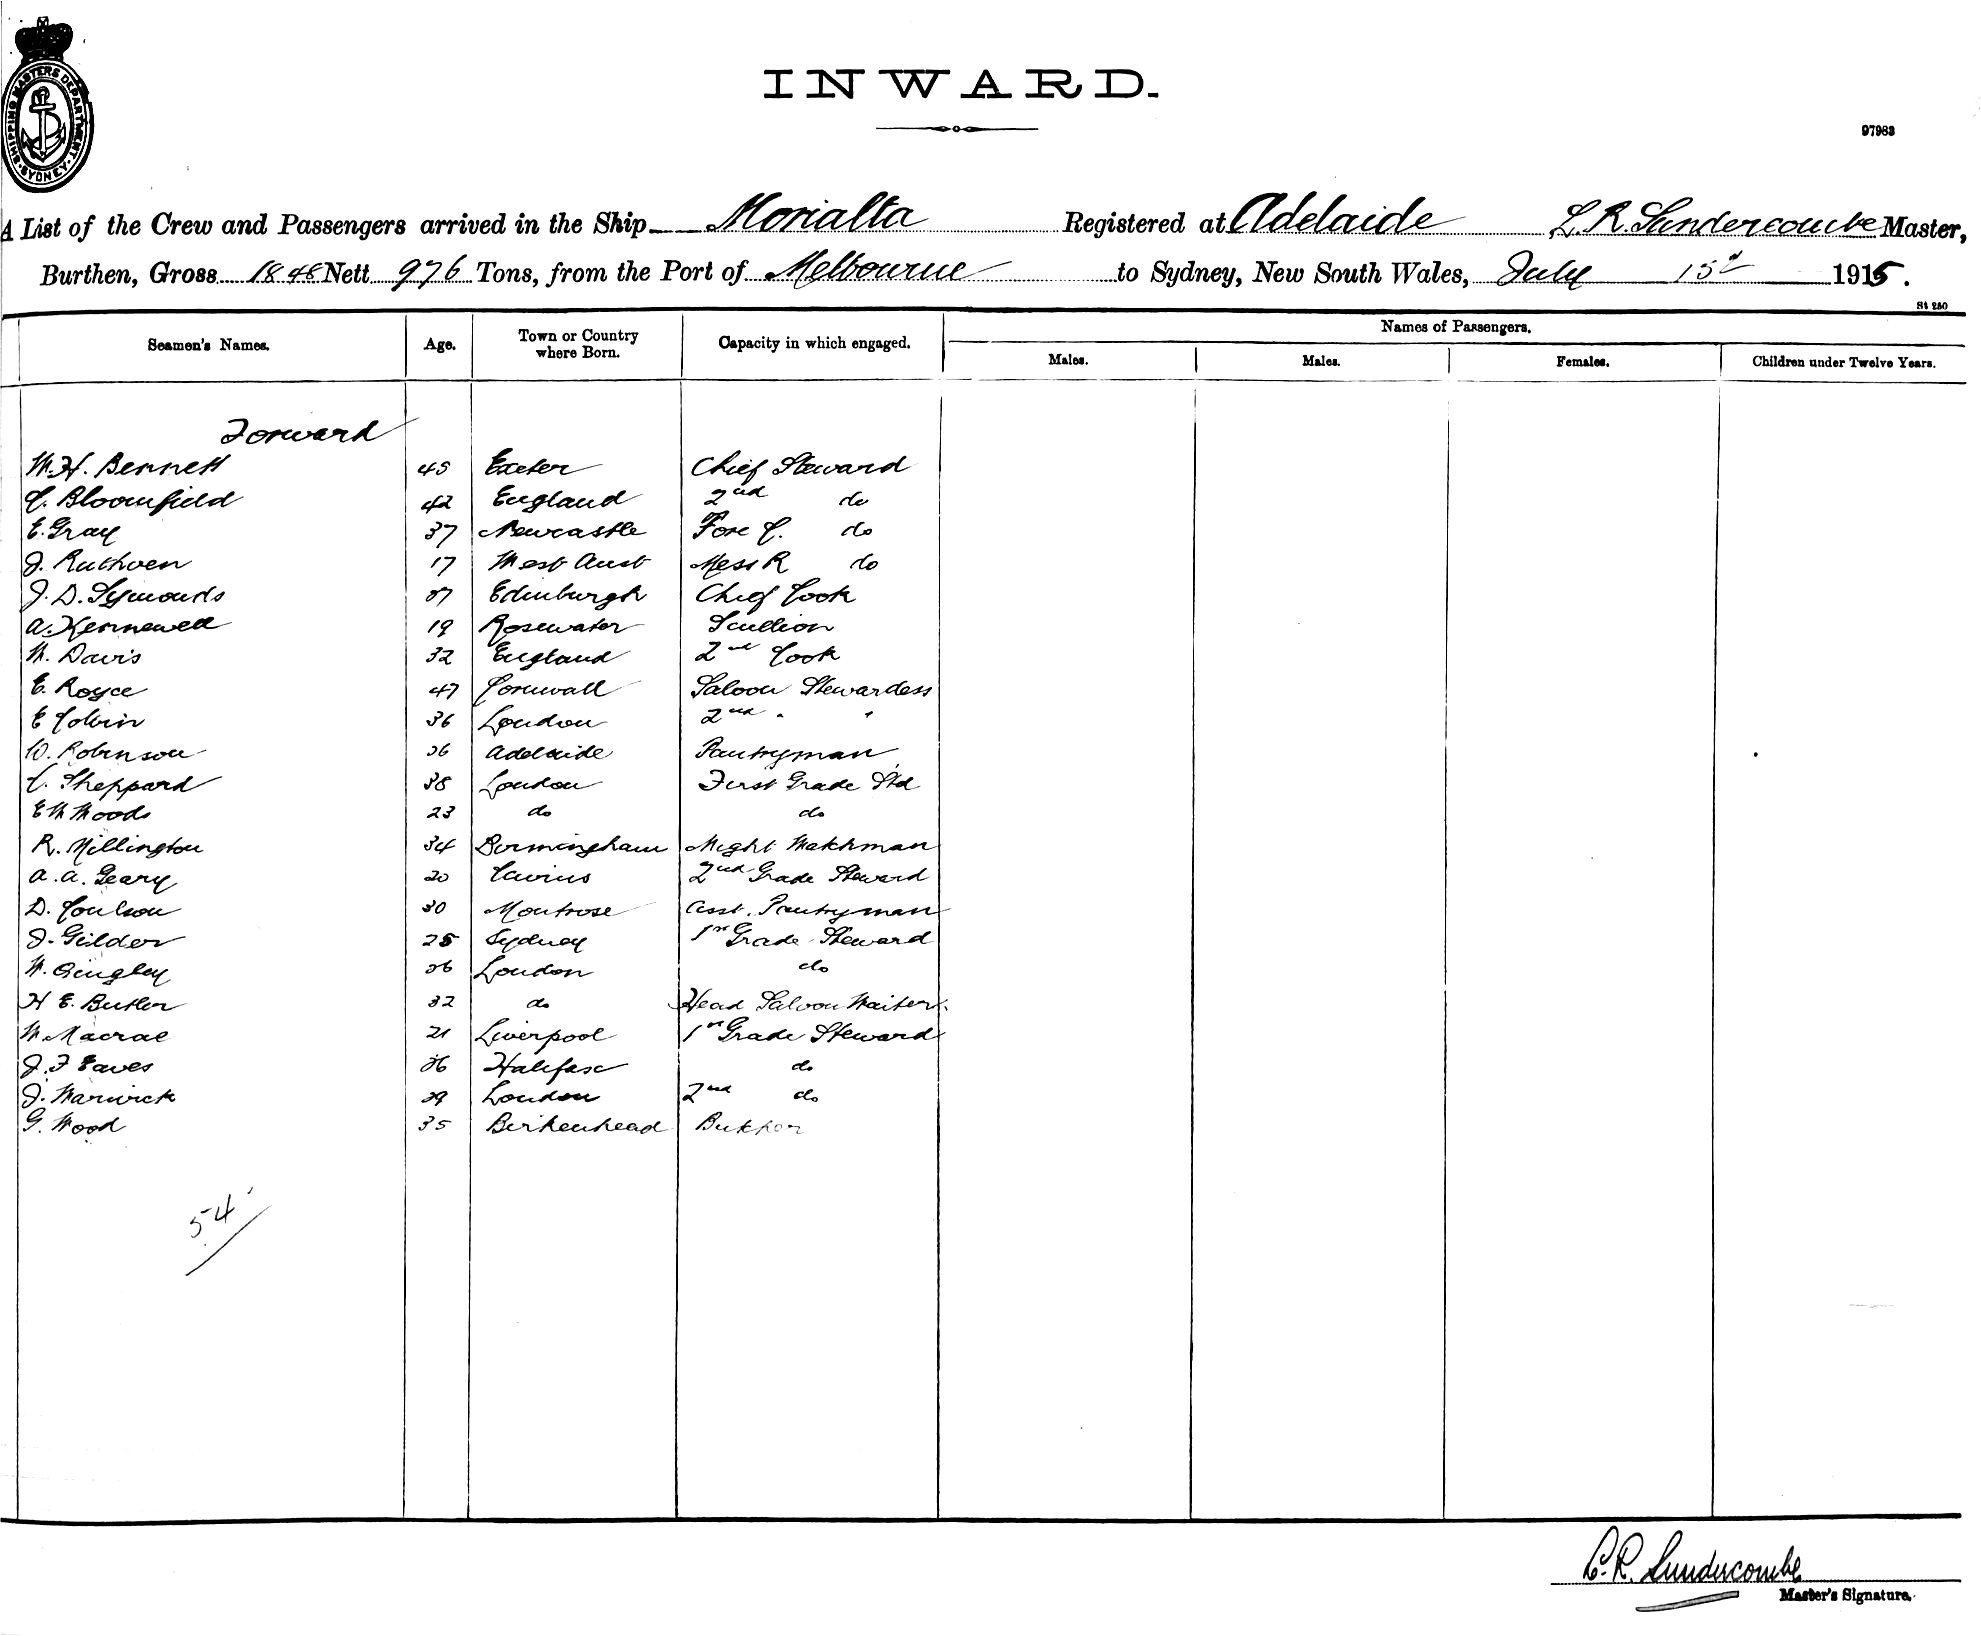 SHIPPING MASTERS DEPARTMENT · SYDNEY ·
INWARD.
97983
A List of the Crew and Passengers arrived in the Ship Morialta Registered at Adelaide L. R. Sundercombe Master,
Burthen, Gross 1848 Nett 976 Tons, from the Port of Melbourne to Sydney, New South Wales, July 15th 1915.
St 250
Seamen's Names. Age. Town or Country where Born. Capacity in which engaged. Names of Passengers.
Males. Males. Females. Children under Twelve Years.
Forward
W. H. Bennett 45 Exeter Chief Steward
C. Bloomfield 42 England 2nd do
E. Gray 37 Newcastle Fore C. do
J. Ruthven 17 West Aust Mess R do
J. D. Symonds Edinburgh Chief Cook
A. Kennewell 19 Rosewater Scullion
W. Davis 32 England 2nd Cook
E. Royce 47 Cornwall Saloon Stewardess
E Colvin 36 London 2nd " "
W. Robinson Adelaide Pantryman
C. Sheppard 38 London First Grade Std
E W Woods 23 do do
R. Millington 34 Birmingham Night Watchman
A. A. Geary 20 2nd Grade Steward
D. Coulson 30 Montrose Asst. Pantryman
J. Gilder 25 Sydney 1st Grade Steward
W. London do
H E. Butler 32 do Head Saloon Waiter
W Macrae 21 Liverpool 1st Grade Steward
J. F Eaves Halifax do
J. Warwick London 2nd do
G. Wood 35 Birkenhead Butcher
54
L. R. Sundercombe
Master's Signature.